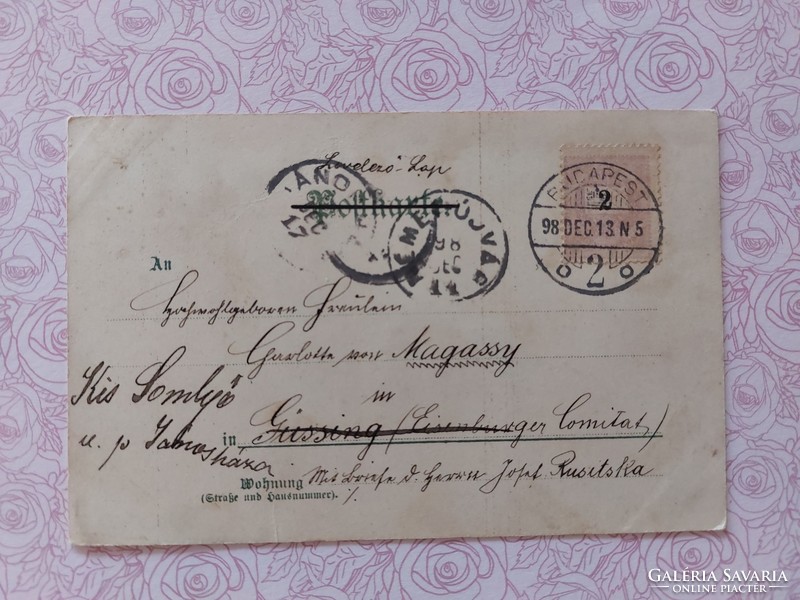 Levelező-Lap
Postkarte
JÁNO
DEC
17
NÉMETÚJVÁR
98
DEC
14
BUDAPEST
2
98 DEC. 13. N 5
2
An
Hochwohlgeboren Fräulein
Charlotte von Magassy
in
Kis Somlyó
u. p Jánosháza
in Güssing (Eisenburger Comitat)
Wohnung
(Straße und Hausnummer).
Mit Briefe d. Herrn Josef Rusitska
GALÉRIA SAVARIA
ONLINE PIACTÉR